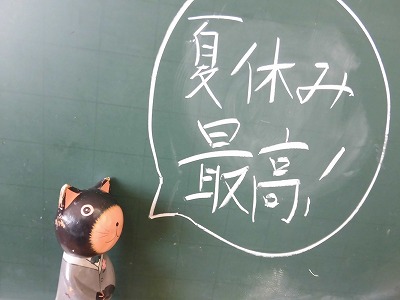 夏休み
最高!